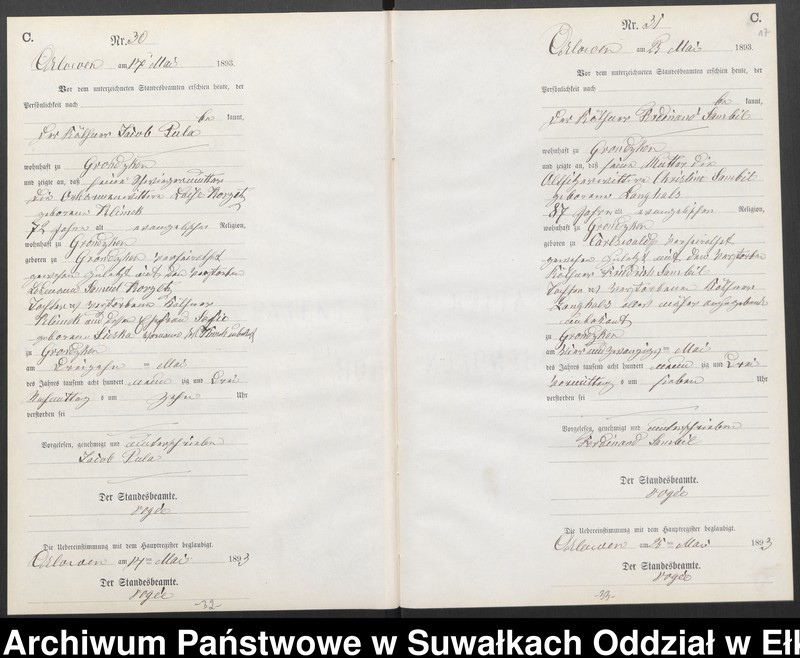 C.
Nr. 30
Orlowen am 17 Mai 1893.
Vor dem unterzeichneten Standesbeamten erschien heute, der
Persönlichkeit nach
be kannt,
der Käthner Jacob Pula
wohnhaft zu Grondzken
und zeigte an, daß seine Schwiegermutter
die Ortsarmenwittwe Luise Korzetz
geborene Klimek
72 Jahre evangelischer Religion,
wohnhaft zu Grondzken
geboren zu Grondzken verheirathet
gewesen zuletzt mit dem verstorbenen
Samuel Korzetz
Tochter verstorbenen Käthner
Klimek und dessen Ehefrau
geborene
zu Grondzken
am Dreizehn ten Mai
des Jahres tausend acht hundert neun zig und Drei
Nachmittags um zehn Uhr
verstorben sei
Vorgelesen, genehmigt und unterschrieben
Jacob Pula
Der Standesbeamte.
Die Uebereinstimmung mit dem Hauptregister beglaubigt.
Orlowen am 17 ten Mai 1893
Der Standesbeamte.
-32-
C.
17
Nr. 31
Orlowen am 25 Mai 1893.
Vor dem unterzeichneten Standesbeamten erschien heute, der
Persönlichkeit nach
be kannt,
der Käthner Ferdinand Sembil
wohnhaft zu Grondzken
und zeigte an, daß seine Mutter die
Altsitzerwittwe Christine Sembil
geborene Langhals
87 Jahre alt evangelischen Religion,
wohnhaft zu Grondzken
geboren zu Carlswalde verheirathet
gewesen zuletzt mit dem verstorbenen
Käthner Friedrich Sembil
Tochter verstorbenen Käthner
Langhals alles näher anzugebende
unbekannt
zu Grondzken
am vier und zwanzigsten Mai
des Jahres tausend acht hundert neun zig und Drei
Vormittags um sieben Uhr
verstorben sei
Vorgelesen, genehmigt und unterschrieben
Ferdinand Sembil
Der Standesbeamte.
Die Uebereinstimmung mit dem Hauptregister beglaubigt.
Orlowen am 25 ten Mai 1893
Der Standesbeamte.
-33-
Archiwum Państwowe w Suwałkach Oddział w Ełk